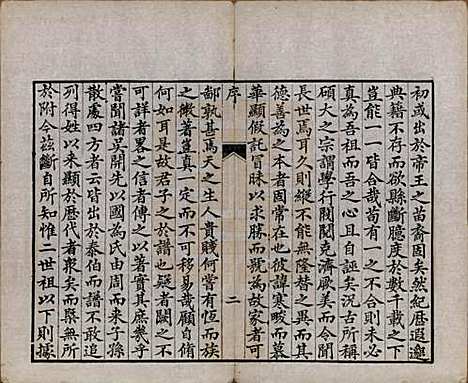 初或出於帝王之苗裔固矣然紀歷遐邈
典籍不存而欲縣斷臆度於數千載之下
豈能一一皆合哉苟有一之不合則未必
真為吾祖而吾之心且自誣矣況古所稱
碩大之宗謂學行閥閱克濟厥美而令聞
長世焉耳久則縱不能無隆替之異而其
德善為之本者固常在也彼諱寒畯而慕
華顯假託冒昧以求勝而號為故家者可
序
二
鄙孰甚焉天之生人貴賤何常有恒而族
之微著豈真一定而不可移易哉顧自脩
何如耳是故君子之於譜也疑者闕之不
可詳者畧之信者傳之以著實其庶幾乎
嘗聞諸吳開先以國為氏由周而來子孫
散處四方者云皆出於泰伯而譜不敢追
列得姓以來顯於歷代者衆矣而槩無所
於附今茲斷自所知惟二世祖以下則據